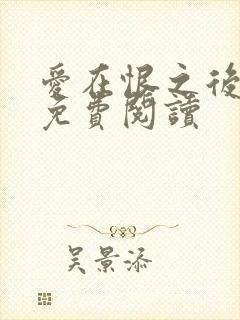 愛在恨之後
免費閱讀
吴景添